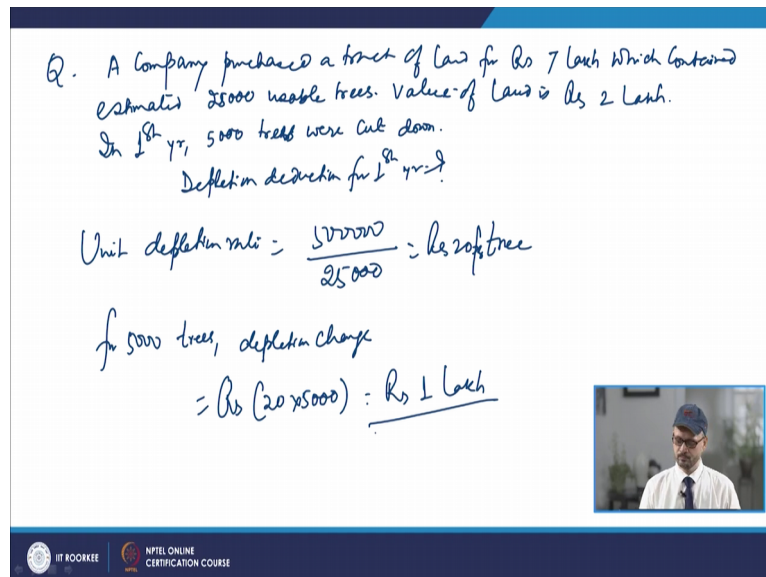 Q. A Company purchased a tract of Land for Rs 7 Lakh which Contained
estimated 25000 usable trees. Value of Land is Rs 2 Lakh.
In 1st yr, 5000 trees were Cut down.
Depletion deduction for 1st yr = ?
Unit depletion rate = 500000 / 25000 = Rs 20 per tree
for 5000 trees, depletion charge
= Rs (20 x 5000) = Rs 1 Lakh
IIT ROORKEE
NPTEL ONLINE
CERTIFICATION COURSE